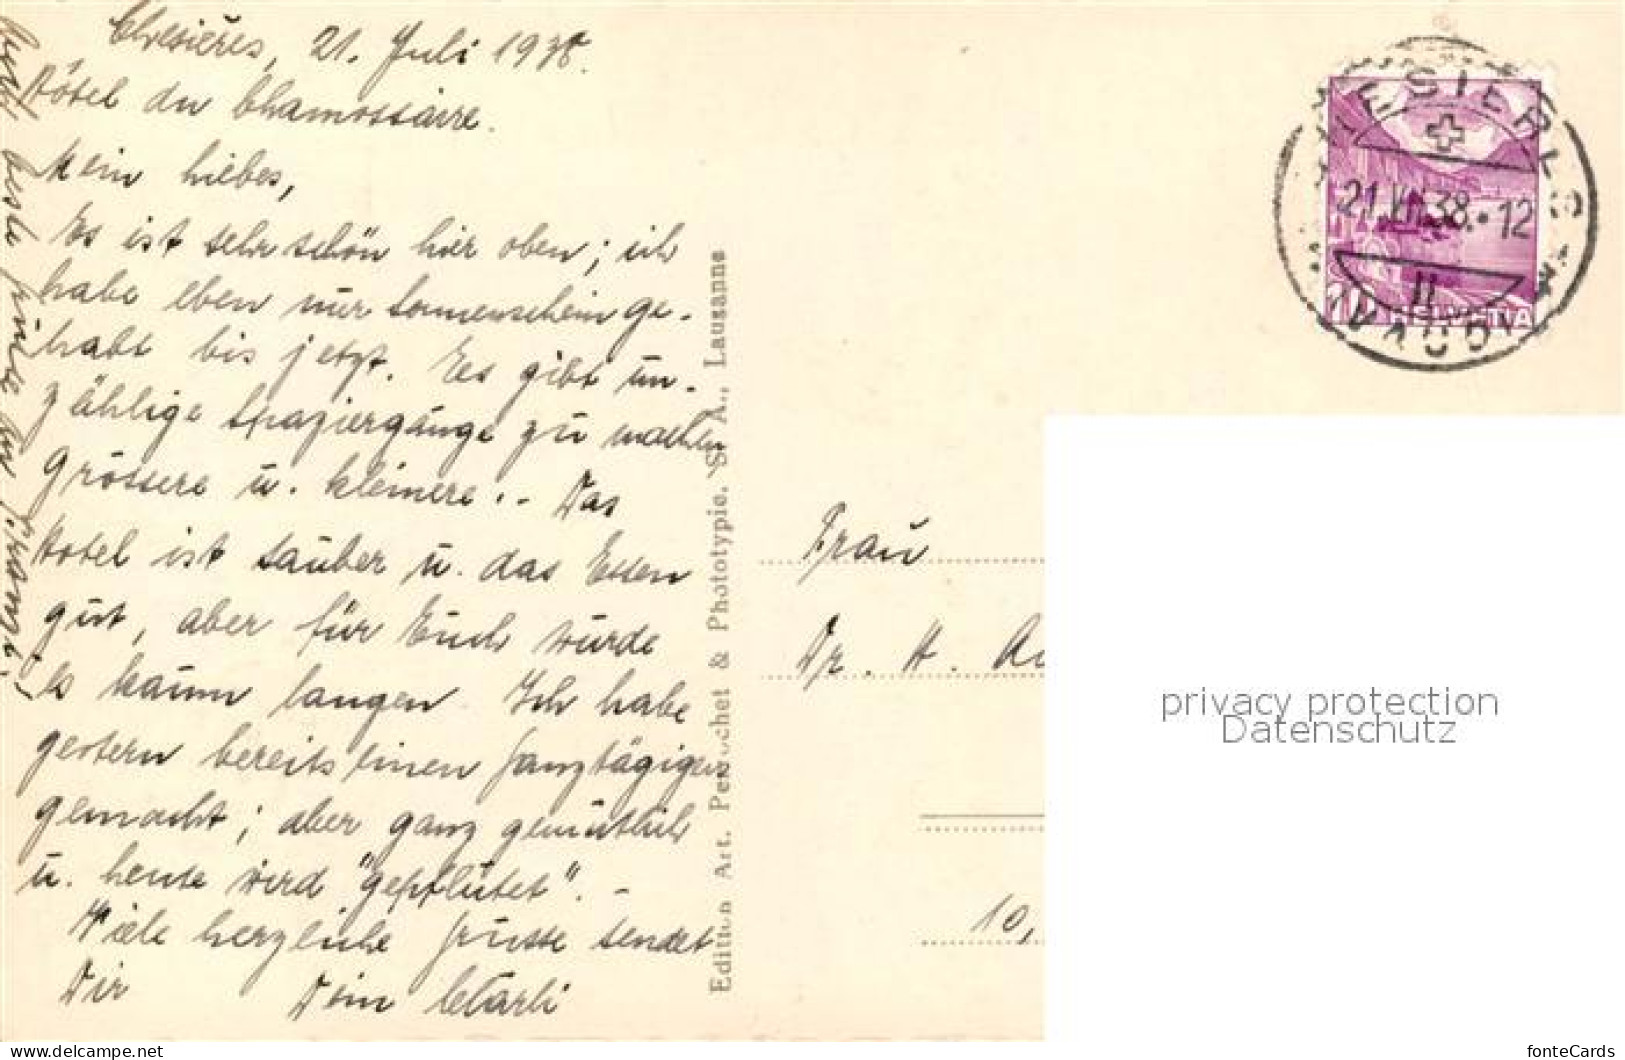 Chesières, 21. Juli 1938.
Hôtel du Chamossaire.
Mein liebes,
Es ist sehr schön hier oben; ich
habe eben nur Sonnenschein ge-
habt bis jetzt. Es gibt un-
zählige Spaziergänge zu machen,
grössere u. kleinere. - Das
Hotel ist sauber u. das Essen
gut, aber für Euch würde
es kaum langen. Ich habe
gestern bereits einen ganztägigen
gemacht; aber ganz gemütlich
u. heute wird "gepflutet". -
Viele herzliche Grüsse sendet
Dir Dein Clärli
Auch beste Grüsse an
Edition Art. Perrochet & Phototypie, S. A., Lausanne
CHESIÈRES
21.VII.38.-12
II
(VAUD)
10
HELVETIA
Frau
Dr. H.
10,
privacy protection
Datenschutz
www.delcampe.net
fonteCards